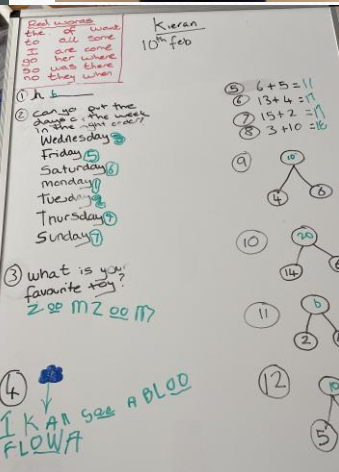 Red words
the of want
to all some
I are come
go her where
so was there
no they when
Kieran
10th feb
① h
② can yo put the
days of the week
in the right order?
Wednesday 3
Friday 5
Saturday 6
monday 1
Tuesday 2
Thursday
Sunday 7
③ what is your
favourite toy?
zoo m zoo m
④
I KAN See A BLOO
FLOWA
⑤ 6+5=11
⑥ 13+4=
⑦ 15+2=
⑧ 3+10=
⑨ 10
4 6
⑩ 20
14 6
⑪ 6
2
⑫ 10
5